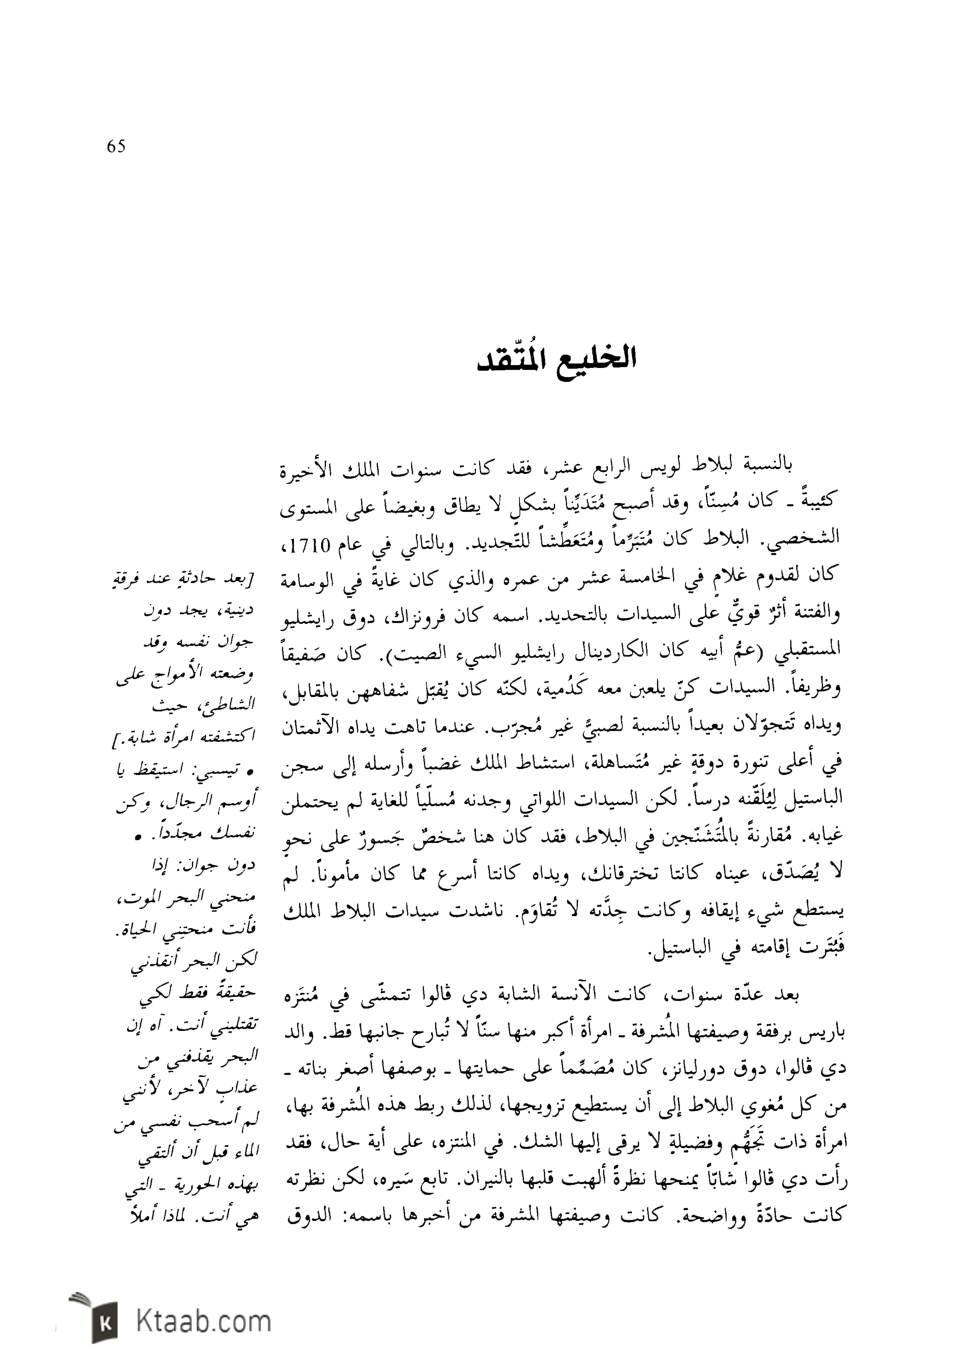 65
الخليع المُتّقد
بالنسبة لبلاط لويس الرابع عشر، فقد كانت سنوات الملك الأخيرة
كئيبةً ـ كان مُسِنّاً، وقد أصبح مُتَدَيِّناً بشكلٍ لا يطاق وبغيضاً على المستوى
الشخصي. البلاط كان مُتَبَرِّماً ومُتَعَطِّشاً للتّجديد. وبالتالي في عام 1710،
كان لقدوم غلامٍ في الخامسة عشر من عمره والذي كان غايةً في الوسامة
والفتنة أثرٌ قويٌّ على السيدات بالتحديد. اسمه كان فرونزاك، دوق رايشليو
المستقبلي (عمُّ أبيه كان الكاردينال رايشليو السيء الصيت). كان صَفيقاً
وظريفاً. السيدات كنّ يلعبن معه كَدُمية، لكنّه كان يُقبّل شفاههن بالمقابل،
ويداه تَتجوّلان بعيداً بالنسبة لصبيٍّ غير مُجرّب. عندما تاهت يداه الآثمتان
في أعلى تنورة دوقةٍ غير مُتَساهلة، استشاط الملك غضباً وأرسله إلى سجن
الباستيل لِيُلَقّنه درساً. لكن السيدات اللواتي وجدنه مُسلّياً للغاية لم يحتملن
غيابه. مُقارنةً بالمُتَشَنّجين في البلاط، فقد كان هنا شخصٌ جَسورٌ على نحوٍ
لا يُصَدّق، عيناه كانتا تخترقانك، ويداه كانتا أسرع مما كان مأموناً. لم
يستطع شيء إيقافه وكانت جِدَّته لا تُقاوَم. ناشدت سيدات البلاط الملك
فَبُتَرت إقامته في الباستيل.
بعد عدّة سنوات، كانت الآنسة الشابة دي ڤالوا تتمشّى في مُنتَزه
باريس برفقة وصيفتها المُشرفة ـ امرأة أكبر منها سنّاً لا تُبارح جانبها قط. والد
دي ڤالوا، دوق دورليانز، كان مُصَمِّماً على حمايتها ـ بوصفها أصغر بناته ـ
من كل مُغوي البلاط إلى أن يستطيع تزويجها، لذلك ربط هذه المُشرفة بها،
امرأة ذات تَجَهُّمٍ وفضيلةٍ لا يرقى إليها الشك. في المنتزه، على أية حال، فقد
رأت دي ڤالوا شابّاً يمنحها نظرةً ألهبت قلبها بالنيران. تابع سَيره، لكن نظرته
كانت حادّةً وواضحة. كانت وصيفتها المشرفة من أخبرها باسمه: الدوق
[بعد حادثةٍ عند فرقةٍ
دينية، يجد دون
جوان نفسه وقد
وضعته الأمواج على
الشاطئ، حيث
اكتشفته امرأة شابة.]
• تيسبي: استيقظ يا
أوسم الرجال، وكن
نفسك مجدّداً. •
دون جوان: إذا
منحني البحر الموت،
فأنت منحتِني الحياة.
لكن البحر أنقذني
حقيقةً فقط لكي
تقتليني أنت. آه إن
البحر يقذفني من
عذابٍ لآخر، لأنني
لم أسحب نفسي من
الماء قبل أن ألتقي
بهذه الحورية ـ التي
هي أنت. لماذا أملأ
Ktaab.com